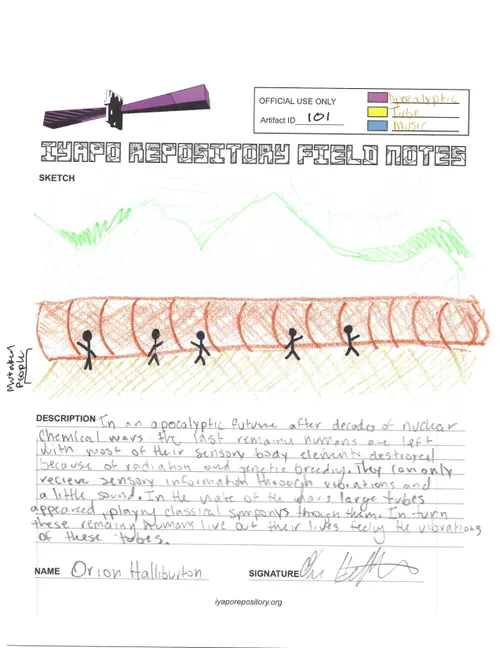 OFFICIAL USE ONLY
Apocalyptic
Artifact ID 101
Tube
Music
IYAPO REPOSITORY FIELD NOTES
SKETCH
Mutated People
DESCRIPTION In an apocalyptic future after decades of nuclear
Chemical wars the last remaining humans are left
with most of their sensory body elements destroyed
because of radiation and genetic breeding. They can only
recieve sensory information through vibrations and
a little sound. In the wake of the wars large tubes
appeared, playing classical symponys through them. In turn
these remaining humans live out their lives feeling the vibrations
of these tubes.
NAME Orion Halliburton
SIGNATURE
iyaporepository.org